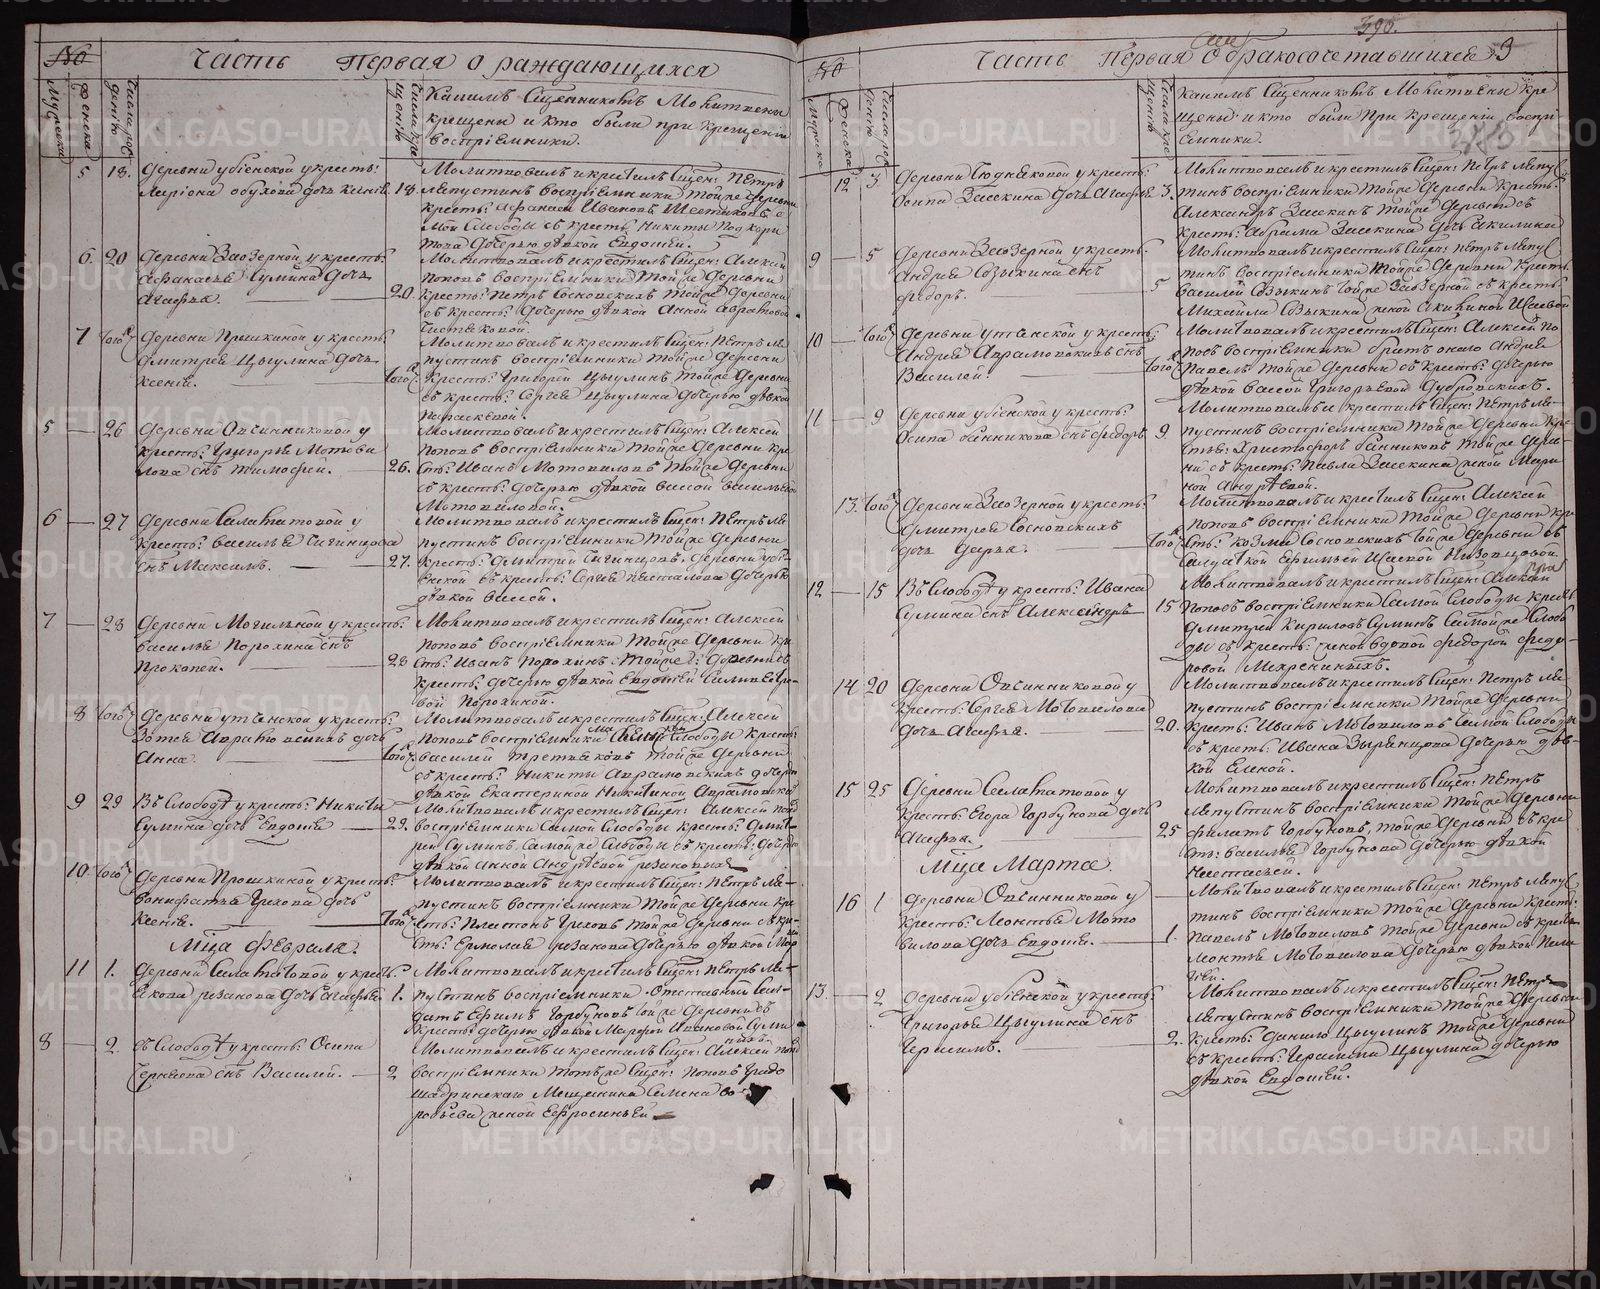 №
Часть Первая о раждающихся
Мужеска
Женска
Числа рождению
Числа крещенію
Каким Сщенникомъ Молитвены
крещены и кто были при крещеніи
воспріемники.
5 18. Деревни убіенской у крестъ:
Маріона дочь Ксенія. 18.
Молитвовалъ и крестилъ Сщен: Петръ
Лепустинъ воспріемники Тойже деревни
крестъ: Афанасей Ивановъ
мой Слободы съ крестъ: Никиты
дочерью дѣвкой Евдокіей.
6. 20 Деревни Заозерной у крестъ:
Афанасья Сумина дочь
Агафья. 20.
Молитвовалъ и крестилъ Сщен: Алексей
Поповъ воспріемники Тойже деревни
крестъ: Петръ Сосновскихъ Тойже деревни
съ крестъ: дочерью дѣвкой Анной
7 того Деревни Прошкиной у крестъ:
Дмитрея Цыулина дочь
Ксенія. того
Молитвовалъ и крестилъ Сщен: Петръ Ле-
пустинъ воспріемники Тойже деревни
крестъ: Григорей Цыулинъ Тойже деревни
съ крестъ: Сергея Цыулина дочерью дѣвкой
Параскевой.
5 — 26 Деревни Овчинниковой у
крестъ: Григорья Мотови
лова снъ Тимофей. 26.
Молитвовалъ и крестилъ Сщен: Алексей
Поповъ воспріемники Тойже деревни кре
стъ: Иванъ Мотовиловъ Тойже деревни
съ крестъ: дочерью дѣвкой Вассой Васильевой
Мотовиловой.
6 — 27 Деревни Саламатовой у
крестъ: Василья Чигинцова
снъ Максимъ. 27.
Молитвовалъ и крестилъ Сщен: Петръ Ле
пустинъ воспріемники Тойже деревни
крестъ: Дмитрей Чигинцовъ. деревни убі-
енской съ крестъ: Сергея дочерью
дѣвкой Вассой.
7 — 28 Деревни Могильной у крестъ:
Василья Порохина снъ
Прокопей. 28
Молитвовалъ и крестилъ Сщен: Алексей
Поповъ воспріемники Тойже деревни кре
стъ: Иванъ Порохинъ: Тойже: деревни съ
крестъ: дочерью дѣвкой Евдокіей
вой Порохиной.
8 того Деревни утченской у крестъ:
Зотея дочь
Анна. того
Молитвовалъ и крестилъ Сщен: Алексей
Поповъ воспріемники Слободы крестъ:
Василей Третьяковъ Тойже деревни
съ крестъ: Никиты Аврамовскихъ дочерью
дѣвкой Екатериной Никитиной Аврамовской
9 29 Въ Слободѣ у крестъ: Никиты
Сумина дочь Евдокія 29.
Молитвовалъ и крестилъ Сщен: Алексей Попов
воспріемники Самой Слободы крестъ: Дмит-
рей Суминъ Самойже Слободы съ крестъ: дочерью
дѣвкой Анной Андреевой
10 того Деревни Прошкиной у крестъ:
Вонифатья Грехова дочь
Ксенія. того
Молитвовалъ и крестилъ Сщен: Петръ Ле-
пустинъ воспріемники Тойже деревни кре
стъ: Платонъ Греховъ Тойже деревни съ кре-
стъ: Ермолая Рязанова дочерью дѣвкой
Мца Февраля.
11 1. Деревни Саламатовой у крестъ:
Якова Рязанова дочь Агафья. 1.
Молитвовалъ и крестилъ Сщен: Петръ Ле-
пустинъ воспріемники. Отставный Сал-
датъ Ефимъ Горбуновъ Тойже деревни съ
крестъ: дочерью дѣвкой Марфой Ивановой
8 — 2. въ Слободѣ у крестъ: Осипа
Черняева снъ Василей. 2
Молитвовалъ и крестилъ Сщен: Алексей Попов
воспріемники Тотъже Сщен: Поповъ Градо
шадринскаго Мещенина Семена Во-
робьева женой Ефросиньей
390.
№
Часть Первая о бракосочетавшихся 9
Мужеска
Женска
Числа рождению
Числа крещенію
Каким Сщенникомъ Молитвены кре
щены и кто были при крещеніи воспрі
емники.
12. 3 Деревни Юднековой у крестъ:
Осипа Засекина дочь Агафья 3.
Молитвовалъ и крестилъ Сщен: Петръ Лепус
тинъ воспріемники Тойже деревни крестъ:
Александръ Засекинъ Тойже деревни съ
крестъ: Абрама Засекина дочь Акилина
9 — 5 Деревни Заозерной у крестъ:
Андрея Созыкина снъ
Федоръ. 5
Молитвовалъ и крестилъ Сщен: Петръ Лепус
тинъ воспріемники Тойже деревни крестъ:
Василей Созыкинъ Тойже Заозерной съ крестъ:
Михайлы Созыкина женой Исаевой
10 — того Деревни утченской у крестъ:
Андрея Аврамовскихъ снъ
Василей. того
Молитвовалъ и крестилъ Сщен: Алексей По
повъ воспріемники братъ онаго Андрея
Павелъ Тойже деревни съ крестъ: дочерью
дѣвкой Вассой Григорьевой Дубровскихъ.
11 — 9 Деревни убіенской у крестъ:
Осипа Банникова снъ Федоръ 9.
Молитвовалъ и крестилъ Сщен: Петръ Ле-
пустинъ воспріемники Тойже деревни кре
стъ: Христофоръ Банниковъ Тойже дерев-
ни съ крестъ: Павла Засекина женой Мари
ной Андреевой.
13. того Деревни Заозерной у крестъ:
Дмитрея Сосновскихъ
дочь Дарья. того
Молитвовалъ и крестилъ Сщен: Алексей
Поповъ воспріемники Тойже деревни кре
стъ: Козма Сосновскихъ Тойже деревни съ
Салдаткой Ефимьей Исаевой Низовцовой
12 — 15 Въ Слободѣ у крестъ: Ивана
Сумина снъ Александръ 15
Молитвовалъ и крестилъ Сщен: Алексей
Поповъ воспріемники Самой Слободы крестъ:
Дмитрей Кириловъ Суминъ Самойже Слобо
ды съ крестъ: женой вдовой Федорой Федо-
ровой Мекрениныхъ.
14 20 Деревни Овчинниковой у
крестъ: Сергея Мотовилова
дочь Агафья. 20.
Молитвовалъ и крестилъ Сщен: Петръ Ле
пустинъ воспріемники Тойже деревни
крестъ: Иванъ Мотовиловъ Самой Слободы
съ крестъ: Ивана Зырянцова дочерью дѣв-
кой Еленой.
15 25 Деревни Саламатовой у
крестъ: Егора Горбунова дочь
Агафья. 25
Молитвовалъ и крестилъ Сщен: Петръ
Лепустинъ воспріемники Тойже деревни
Филатъ Горбуновъ, Тойже деревни съ кре
стъ: Василья Горбунова дочерью дѣвкой
Настасьей.
Мца Марта.
16 1 Деревни Овчинниковой у
крестъ: Леонтья Мото
вилова дочь Евдокія. 1.
Молитвовалъ и крестилъ Сщен: Петръ Лепус
тинъ воспріемники Тойже деревни крестъ:
Павелъ Мотовиловъ Тойже деревни съ крестъ:
Леонтья Мотовилова дочерью дѣвкой Пела
геей.
13. — 2 Деревни убіенской у крестъ:
Григорья Цыулина снъ
Герасимъ. 2.
Молитвовалъ и крестилъ Сщен: Петръ
Лепустинъ воспріемники Тойже деревни
крестъ: Данило Цыулинъ Тойже деревни
съ крестъ: Герасима Цыулина дочерью
дѣвкой Евдокіей.
METRIKI.GASO-URAL.RU